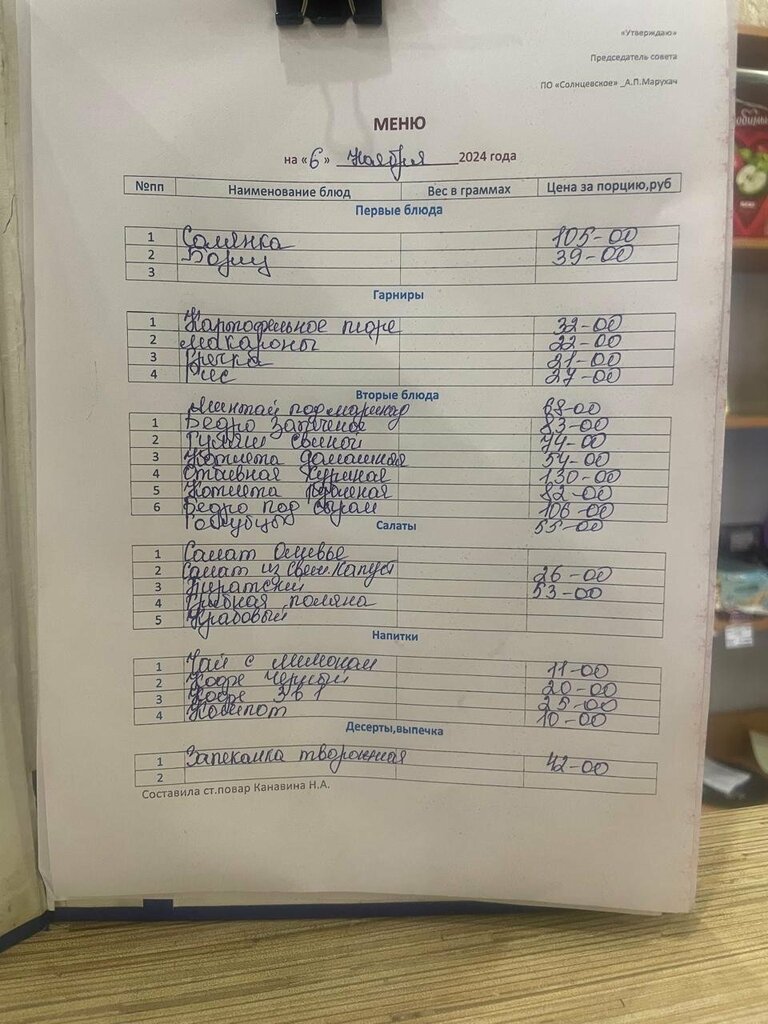 «Утверждаю»
Председатель совета
ПО «Солнцевское» _А.П.Марухач
МЕНЮ
на «6» Ноября 2024 года
№пп Наименование блюд Вес в граммах Цена за порцию,руб
Первые блюда
1 Солянка 105-00
2 Борщ 39-00
3
Гарниры
1 Картофельное пюре 32-00
2 Макароны 22-00
3 Гречка 21-00
4 Рис 27-00
Вторые блюда
Минтай под маринад 68-00
1 Бедро запеченое 83-00
2 Гуляш свиной 74-00
3 Котлета домашняя 54-00
4 Отбивная куриная 130-00
5 Котлета 82-00
6 Бедро под сыром 106-00
Голубцы 55-00
Салаты
1 Салат Оливье
2 Салат из Свеж.Капуст 26-00
3 Пиратский 53-00
4 Грибная поляна
5 Крабовый
Напитки
1 Чай с лимоном 11-00
2 Кофе черный 20-00
3 Кофе 3 в 1 25-00
4 Компот 10-00
Десерты,выпечка
1 Запеканка творожная 42-00
2
Составила ст.повар Канавина Н.А.